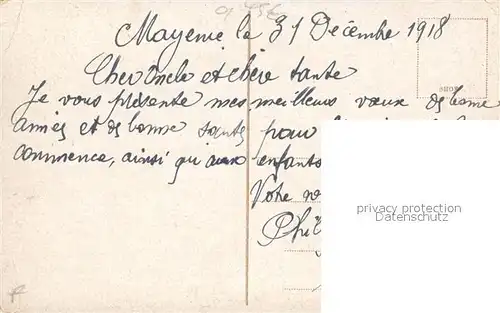 Mayenne le 31 Décembre 1918
Cher Oncle et chère tante
Je vous présente mes meilleurs vœux de bonne
année et de bonne santé pour
commence, ainsi qu'aux enfants
Votre
privacy protection
Datenschutz